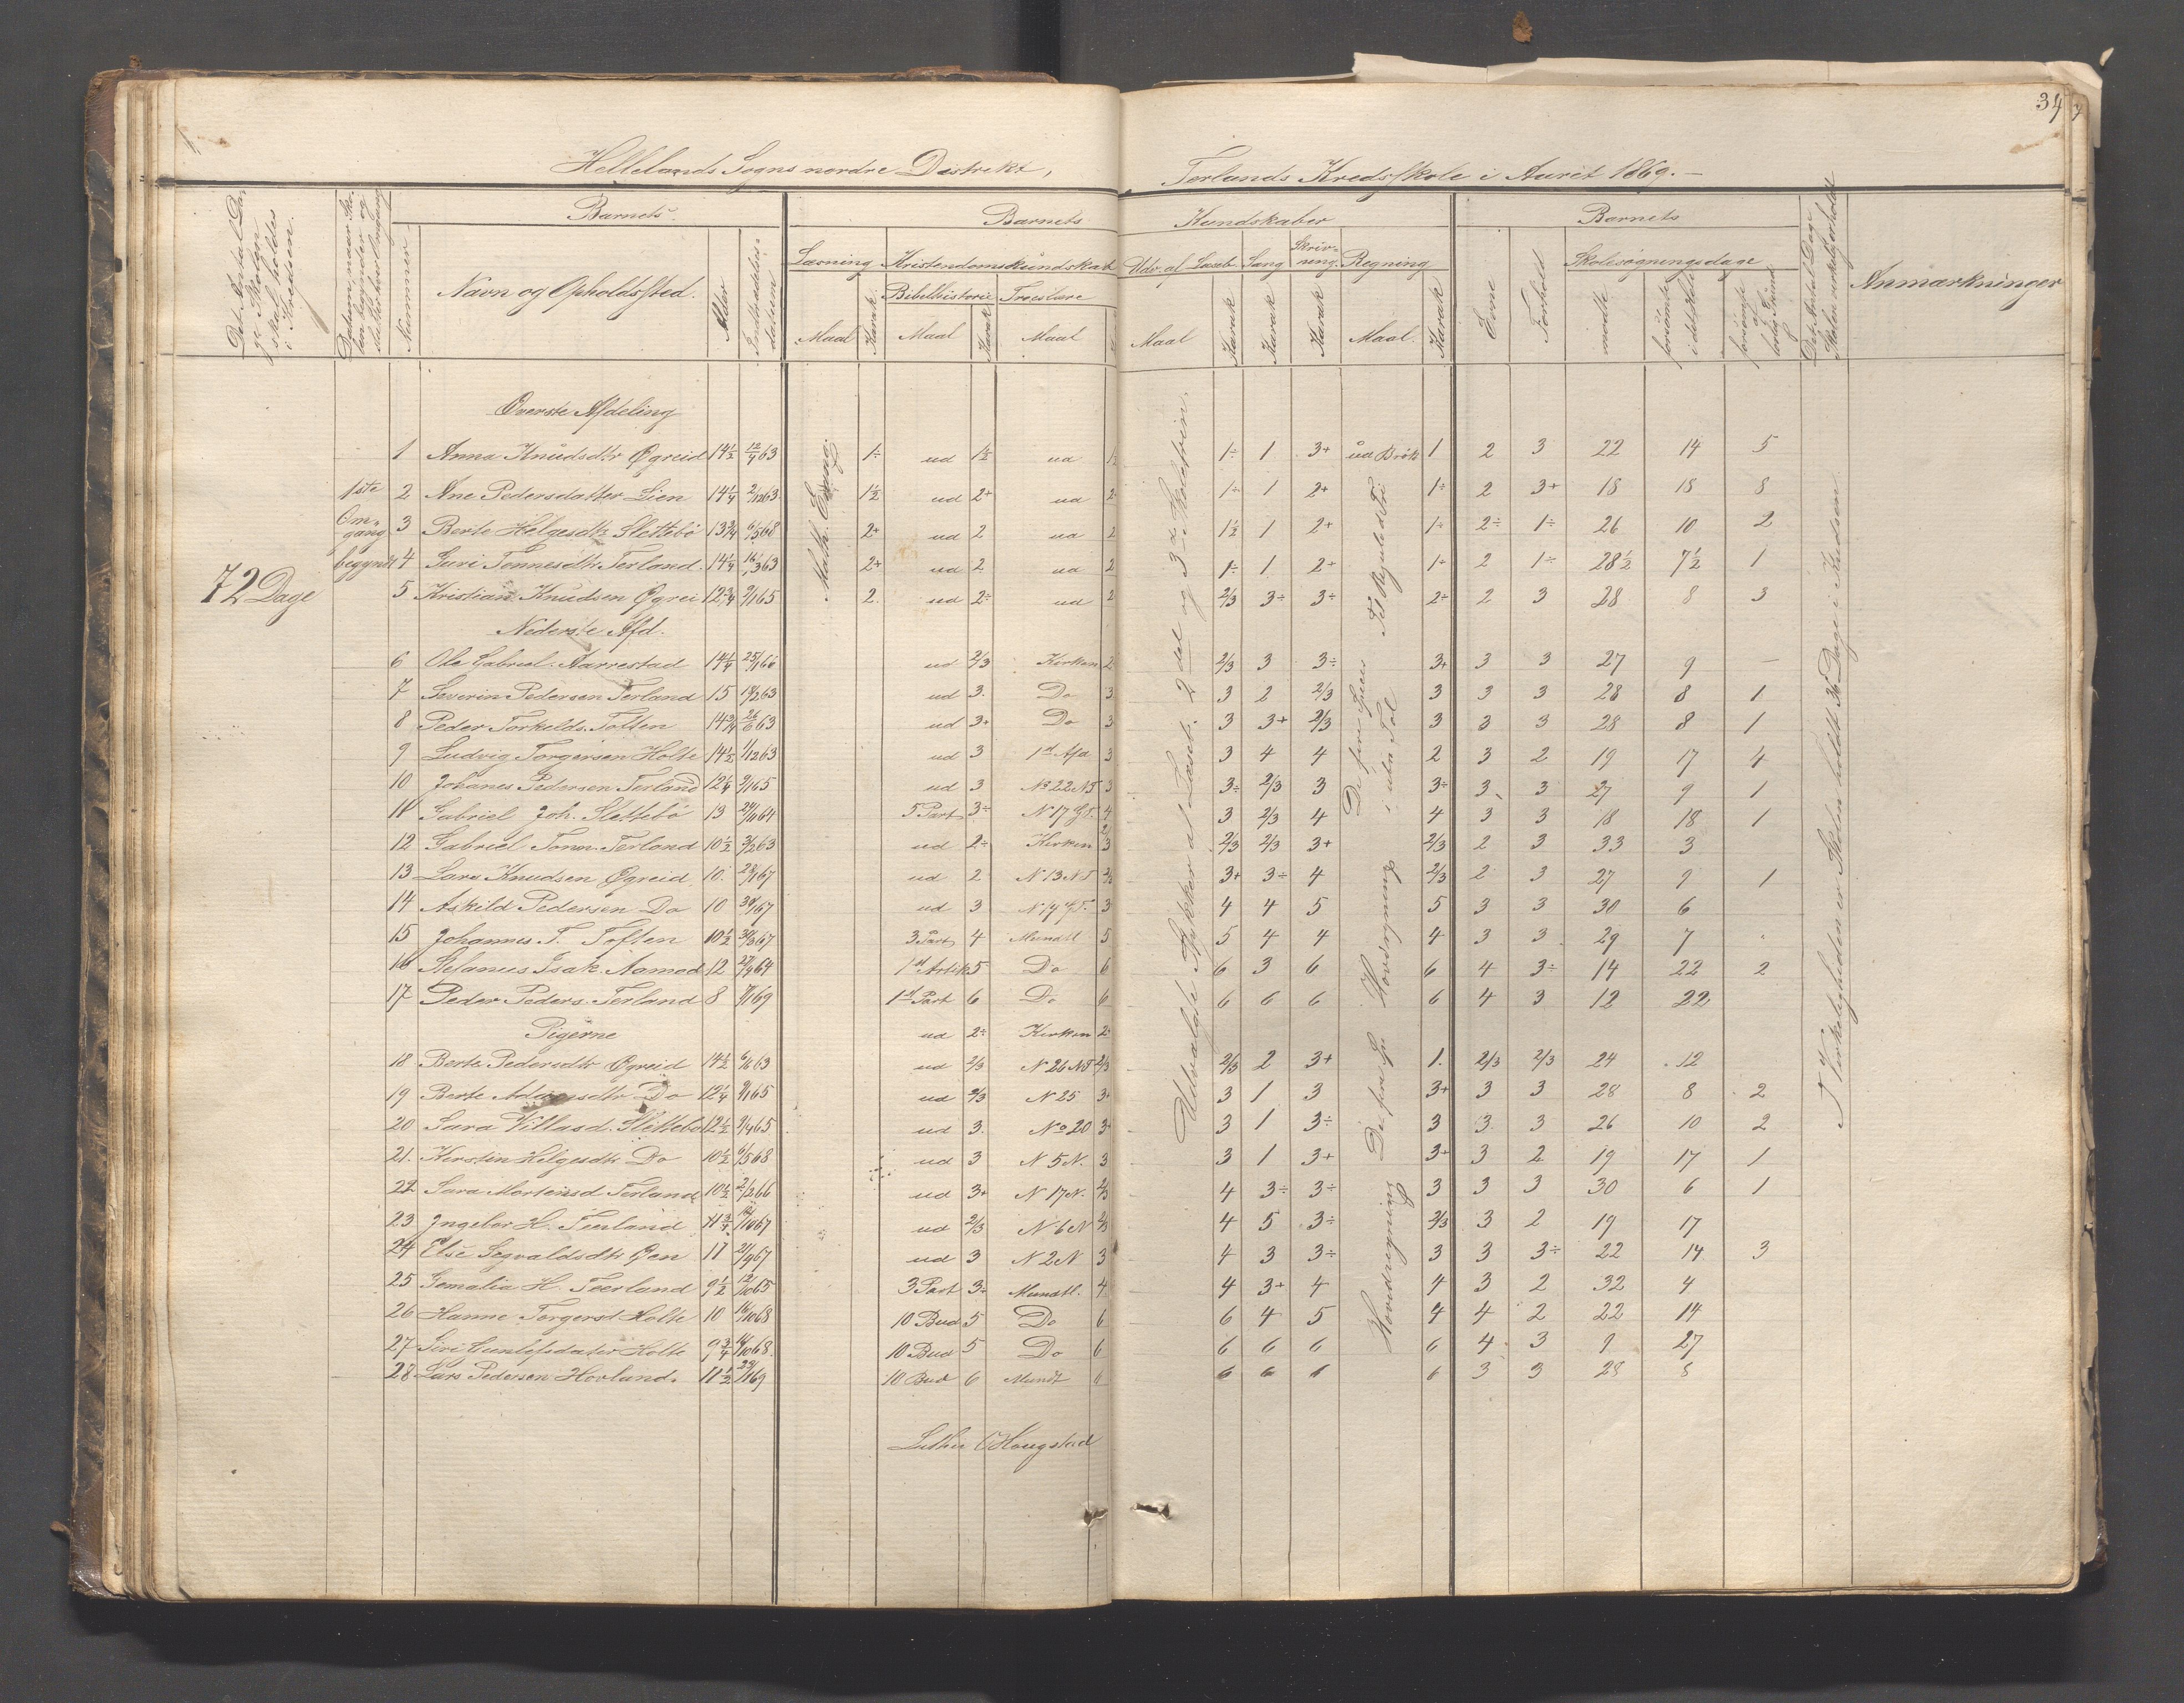 34
Hellelands Sogns nordre Distrikt, Terlands Kredsskole i Aaret 1869.
Barnets Barnets Kundskaber Barnets
Læsning Kristendomskundskab Udv. af Læseb. Sang Skriv-ning. Regning Skolesøgningsdage
Bibelhistorie Troeslære
Nummer Navn og Opholdssted. Alder Indtrædelses-datum Maal Karak. Maal Karak Maal Maal Karak Karak Karak Maal. Karak Evne Forhold mødte forsømte i det Hele Anmærkninger
Det Antal Dage Skolen skal holdes i Kredsen.
Øverste Afdeling
1 Anna Knudsdtr Øgreid 14½ 12/9 63 1÷ ud 1½ ud 1½ 1÷ 1 3+ ud Brøk 1 2 3 22 14 5
1ste 2 Ane Pedersdatter Lien 14¼ 2/12 63 1½ ud 2+ ud 2 1÷ 1 2+ 1÷ 2 3+ 18 18 8
Om-gang 3 Berte Helgesdtr Slettebø 13¾ 6/5 68 2+ ud 2 ud 2 1½ 1 2+ 1÷ 2÷ 1÷ 26 10 2
begyndt 4 Guri Tønnesdtr Terland. 14¼ 16/3 63 2+ ud 2 ud 2 1÷ 1 2+ 1÷ 2 1÷ 28½ 7½ 1
72 Dage 5 Kristian Knudsen Øgrei 12¾ 9/1 65 2. ud 2÷ ud 2 2/3 3÷ 3÷ 2÷ 2 3 28 8 3
Nederste Afd.
6 Ole Gabriel. Aarrestad 14¼ 25/1 66 ud 2/3 Kirken 2 2/3 3 3÷ 3+ 3 3 27 9 –
7 Severin Pedersen Terland 15 18/2 63 ud 3. Do 3 3 2 2/3 3 3 3 28 8 1
8 Peder Torkelds. Toften 14¾ 26/6 63 ud 3+ Do 3 3 3+ 2/3 3 3 3 28 8 1
9 Ludvig Torgersen Holte 14½ 1/12 63 ud 3 1st Afd 3 3 4 4 2 3 2 19 17 4
10 Johanes Pedersen Terland 12¼ 9/1 65 ud 3 No 22 NT 3 3÷ 2/3 3 3÷ 3 3 27 9 1
11 Gabriel Joh. Slettebø 13 24/10 64 5 Part 3÷ N 17 GT. 4 3 2/3 4 4 3 3 18 18 1
12 Gabriel Tønn. Terland 10½ 3/2 63 ud 2÷ Kirken 2/3 2/3 2/3 3+ 2/3 2 3 33 3
13 Lars Knudsen Øgreid 10. 28/1 67 ud 2 N 13 NT 2/3 3+ 3÷ 4 2/3 2 3 27 9 1
14 Askild Pedersen Do 10 30/1 67 ud 3 N 14 GT. 3 4 4 5 5 3 3 30 6
15 Johannes T. Toften 10½ 30/3 67 3 Part 4 Mundtl 5 5 4 4 4 3 3 29 7
16 Stefanus Isak. Aamod 12 28/9 64 1st Artik 5 Do 6 6 3 6 6 4 3÷ 14 22 2
17 Peder Peders. Terland 8 9/1 69 1st Part 6 Do 6 6 6 6 6 4 3 12 22
Pigerne ud 2÷ Kirken 2
18 Berte Pedersdtr Øgreid 14½ 6/6 63 ud 2/3 N 26 NT 2/3 2/3 2 3+ 1. 2/3 2/3 24 12
19 Berte Do 12¼ 9/1 65 ud 2/3 N 25 3 3 1 3 3+ 3 3 28 8 2
20 Sara Villasd. Slettebø 12½ 9/1 65 ud 3. No 20 3+ 3 1 3÷ 3 3 3 26 10 2
21. Kerstin Helgesdtr Do 10½ 6/5 68 ud 3 N 5 N. 3 3 1 3+ 3+ 3 2 19 17 1
22 Sara Mortensd Terland 10½ 2/2 66 ud 3+ N 17 N. 2/3 4 3÷ 3÷ 3 3 3 30 6 1
23 Ingebor H. Teerland 11¾ 12/10 67 ud 2/3 N 6 N 2/3 4 5 3÷ 2/3 3 2 19 17
24 Else Segvaldsdtr Øen 11 21/9 67 ud 3 N 2 N 3 4 3 3÷ 3 3 3÷ 22 14. 3
25 Gemalia H. Teerland 9½ 12/10 65 3 Part 3÷ Mundtl. 4 4 3+ 4 4 3 2 32 4
26 Hanne Torgersd Holte 10 16/10 68 10 Bud 5 Do 6 6 4 5 4 4 2 22 14
27 Siri Gunlefsdater Holte 9¾ 16/10 68. 10 Bud 5 Do 6 6 6 6 6 4 3 9 27
28 Lars Pedersen Hovland. 11½ 23/1 69 10 Bud 6 Mundt 6 6 6 6 6 3 3 28 8
Math. Evang.
Udvalgte Stykker af Læseb. 2det og 3die Skoletrin.
De fire Spec i uta Tal
Hovedregning
De fire Sp.
Hovedregning
I Virkeligheden er Skolen holdt 36 Dage i Kredsen
Hougstad